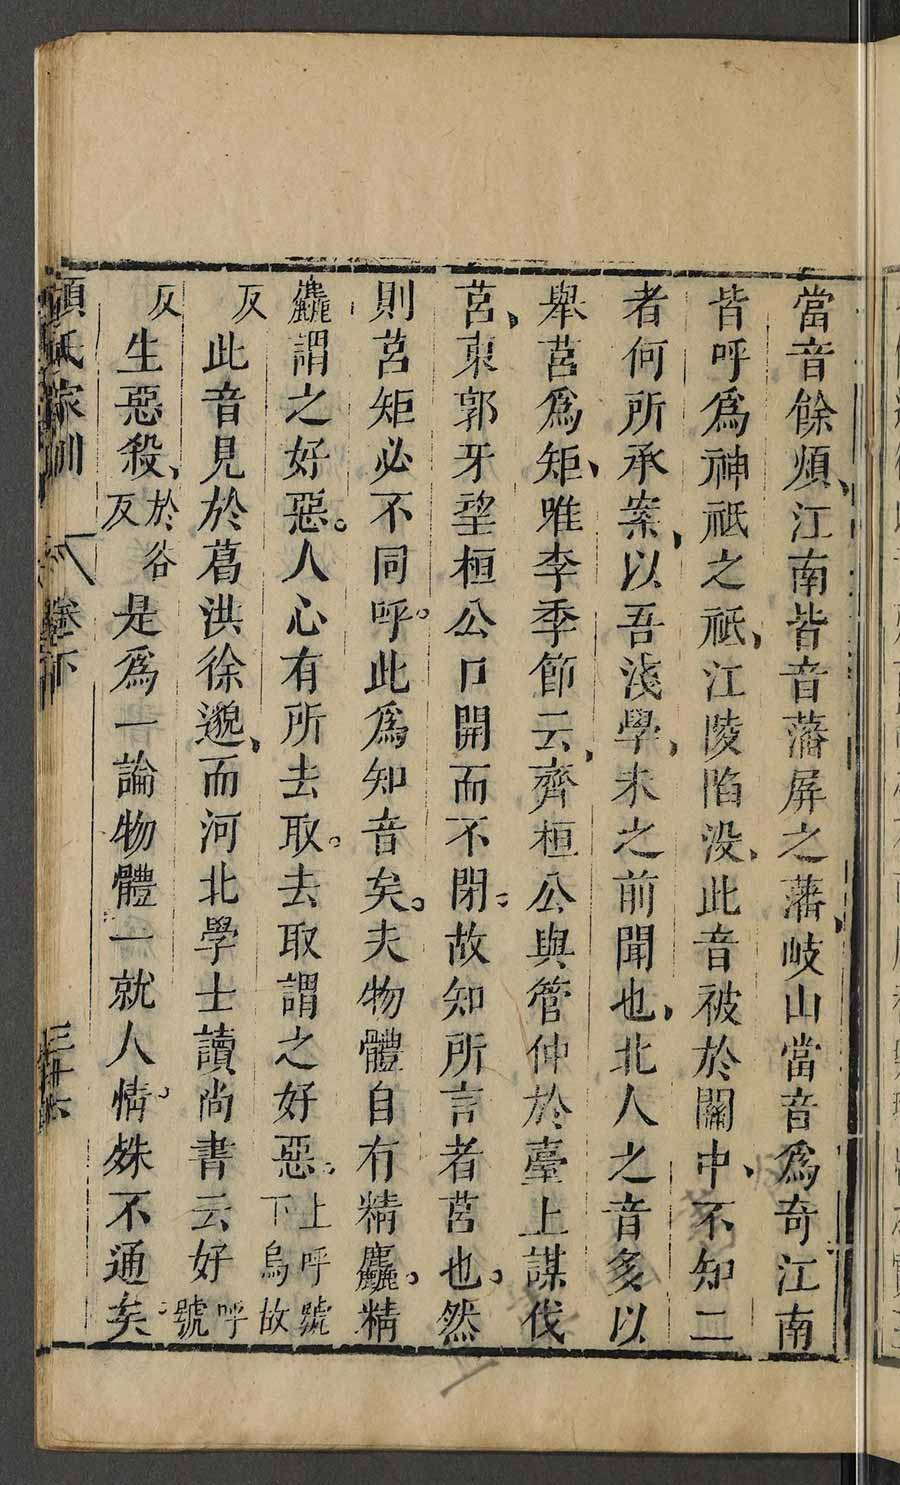 當音餘煩、江南皆音藩屏之藩、岐山當音爲奇江南
皆呼爲神祇之祇、江陵陷没、此音被於關中、不知二
者何所承案、以吾淺學、未之前聞也、北人之音多以
舉莒爲矩、唯李季節云、齊桓公與管仲於臺上謀伐
莒、東郭牙望桓公口開而不閉。故知所言者莒也。然
則莒矩必不同呼。此爲知音矣。夫物體自有精麤。精
麤謂之好惡。人心有所去取。去取謂之好惡。上呼號下烏故
反此音見於葛洪徐邈、而河北學士讀尚書云好呼號
反生惡殺、於谷反是爲一論物體一就人情。殊不通矣
顏氏家訓 卷下 三十六